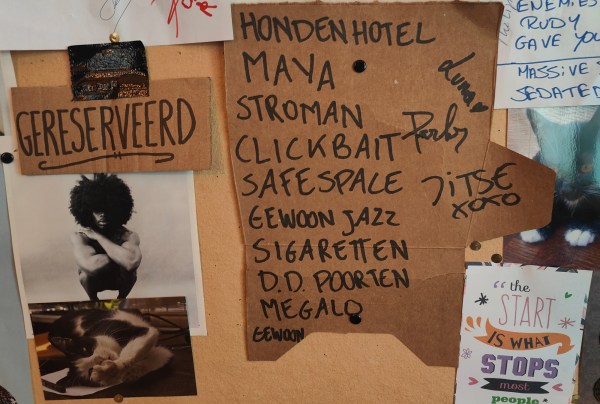 ENEMIES
RUDY
GAVE YOU
MASSIVE
SEDATED
HONDENHOTEL
MAYA
STROMAN
CLICKBAIT
SAFESPALE
GEWOON JAZZ
SIGARETTEN
D.D. POORTEN
MEGALO
GEWOON
Luna
JITSE
XOXO
GERESERVEERD
“the
START
IS WHAT
STOPS
most
people